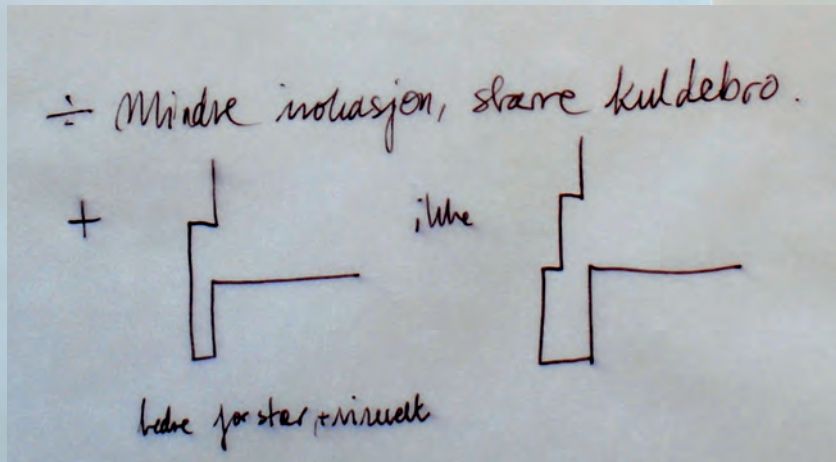 ÷ Mindre isolasjon, større kuldebro.
+ ikke
bedre for støv, + visuelt